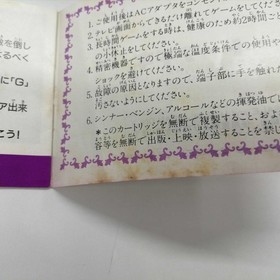 敵を倒し
るべく
に「G」
ア出来
こう!
1. ご使用後はACアダプタをコンセン
2. テレビ画面からできるだけ離れてゲームをして
3. 長時間ゲームをする時は、健康のため約2時間ご
の小休止をしてください。
4. 精密機器ですので極端な温度条件での使用や
ショックを避けてください。
5. 故障の原因となりますので、端子部に手を触れ
汚さないようにしてください。
6. シンナー・ベンジン、アルコールなどの揮発油で
＊このカートリッジを無断で複製すること、およ
容等を無断で出版・上映・放送することを禁